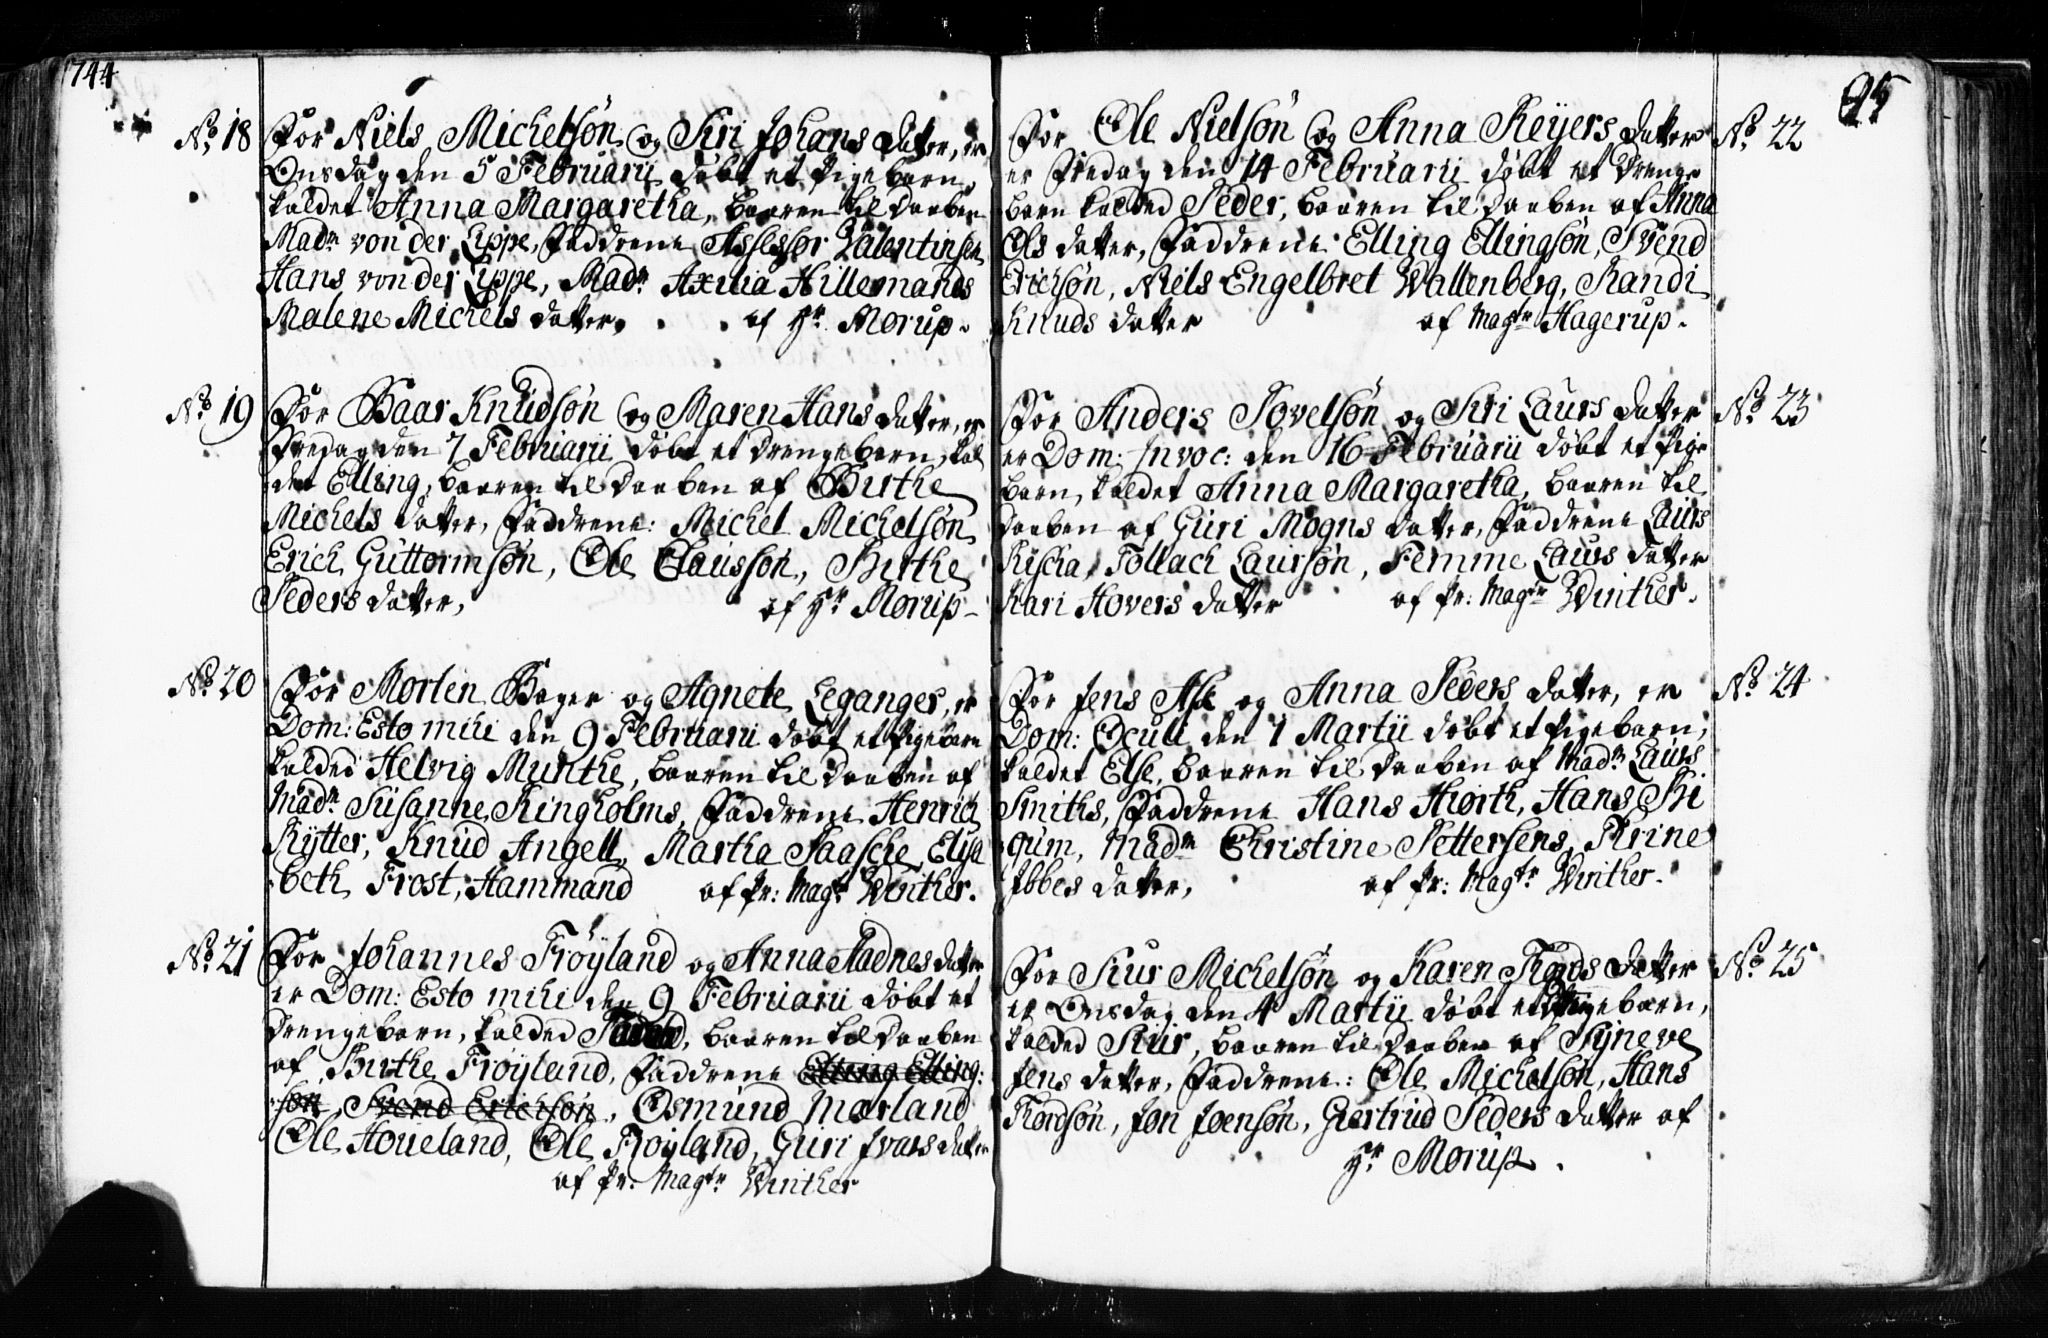 1744
No 18
For Niels Michelsøn og Siri Johans datter, er
Onsdag den 5 Februarii døbt et Pigebarn
kaldet Anna Margaretha, baaren til daaben
Madm von der Lippe, Faddrene Assessor Valentinsen
Hans von der Lippe, Madm Axilia Hillemands
Malene Michels datter, af Hr. Morup.
No 19
For Baar Knudsøn og Maren Hans datter, er
Fredag den 7 Februarii døbt et drengebarn, kal
det Elling, baaren til daaben af Birthe
Michels datter, Faddrene: Michel Michelsøn
Erich Guttormsøn, Ole Clausson, Birthe
Peders datter, af Hr Morup
No 20
For Morten Bager og Agnete Leganger, er
Dom: Esto mihi den 9 Februarii døbt et Pigebarn
kalded Helvig Munthe, baaren til daaben af
Madm Susanne Ringholms, Faddrene Henrich
Rytter, Knud Angell, Martha Paasche, Elisa
beth Frost, Hammand af Pr: Magr Winther.
No 21
For Johannes Frøyland og Anna Aadnes datter
er Dom: Esto mihi den 9 Februarii døbt et
drengebarn, kalded baaren til daaben
af Birthe Frøyland, Faddrene Elling Elling:
søn, Svend Erichsøn, Osmund Marland
Ole Houeland, Ole Frøyland, Guri Ivars datter
af Pr: Magtr Winther
95
No 22
For Ole Nielsøn og Anna Reyers datter
er Fredag den 14 Februarii døbt et drenge
barn kalded Peder, baaren til daaben af Anna
Ols datter, Faddrene Elling Ellingsøn, Svend
Erichsøn, Niels Engelbret Wallenberg, Randi
Knuds datter af Magtr Hagerup.
No 23
For Anders Povelsøn og Siri Laurs datter
er Dom: Invoc: den 16 Februarii døbt et Pige
barn, kaldet Anna Margaretha, baaren til
daaben af Guri Mogns datter, Faddrene Laurs
Rischa, Tollach Laursøn, Femme Laurs datter
Kari Hovers datter af Pr: Magtr Winther.
No 24
For Jens Ask og Anna Peders datter, er
Dom: Oculi den 7 Martii døbt et Pigebarn,
kaldet Else, baaren til daaben af Madm Laurs
Smiths, Faddrene Hans Hiorth, Hans Bi
qum, Madm Christine Pettersens, Trine
Ibbes datter, af Pr: Magtr Winther.
No 25
For Siur Michelsøn og Karen Thords datter
er Onsdag den 4 Martii døbt et Pigebarn,
kalded Siur, baaren til daaben af Syneve
Jens datter, Faddrene: Ole Michelsøn, Hans
Thordsøn, Jon Joensøn, Giertrud Peders datter af
Hr Morup.